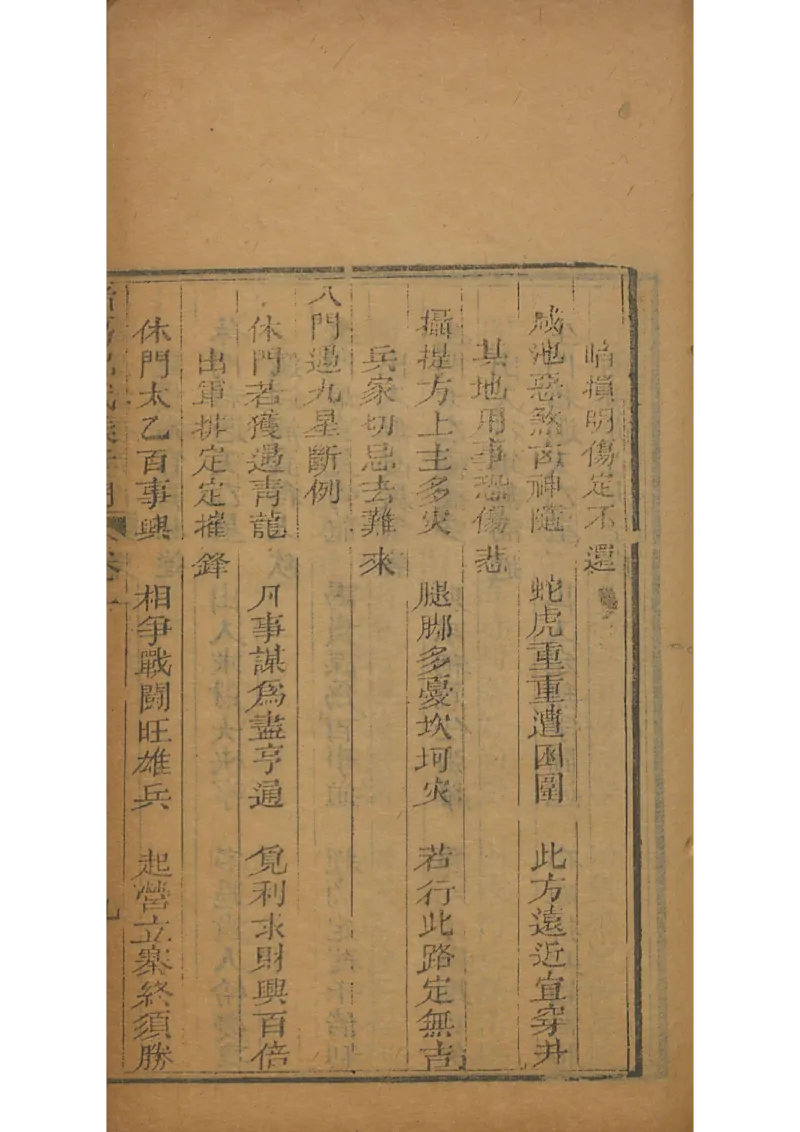 暗損明傷定不還
咸池惡煞凶神隨 蛇虎重重遭困圍 此方遠近宜穿井
其地用事恐傷悲
攝提方上主多灾 腿脚多憂坎坷灾 若行此路定無吉
兵家切忌去難來
八門遇九星斷例
休門若獲遇青龍 凡事謀爲盡亨通 覓利求財興百倍
出軍排定定摧鋒
休門太乙百事興 相爭戰鬪旺雄兵 起營立寨終須勝